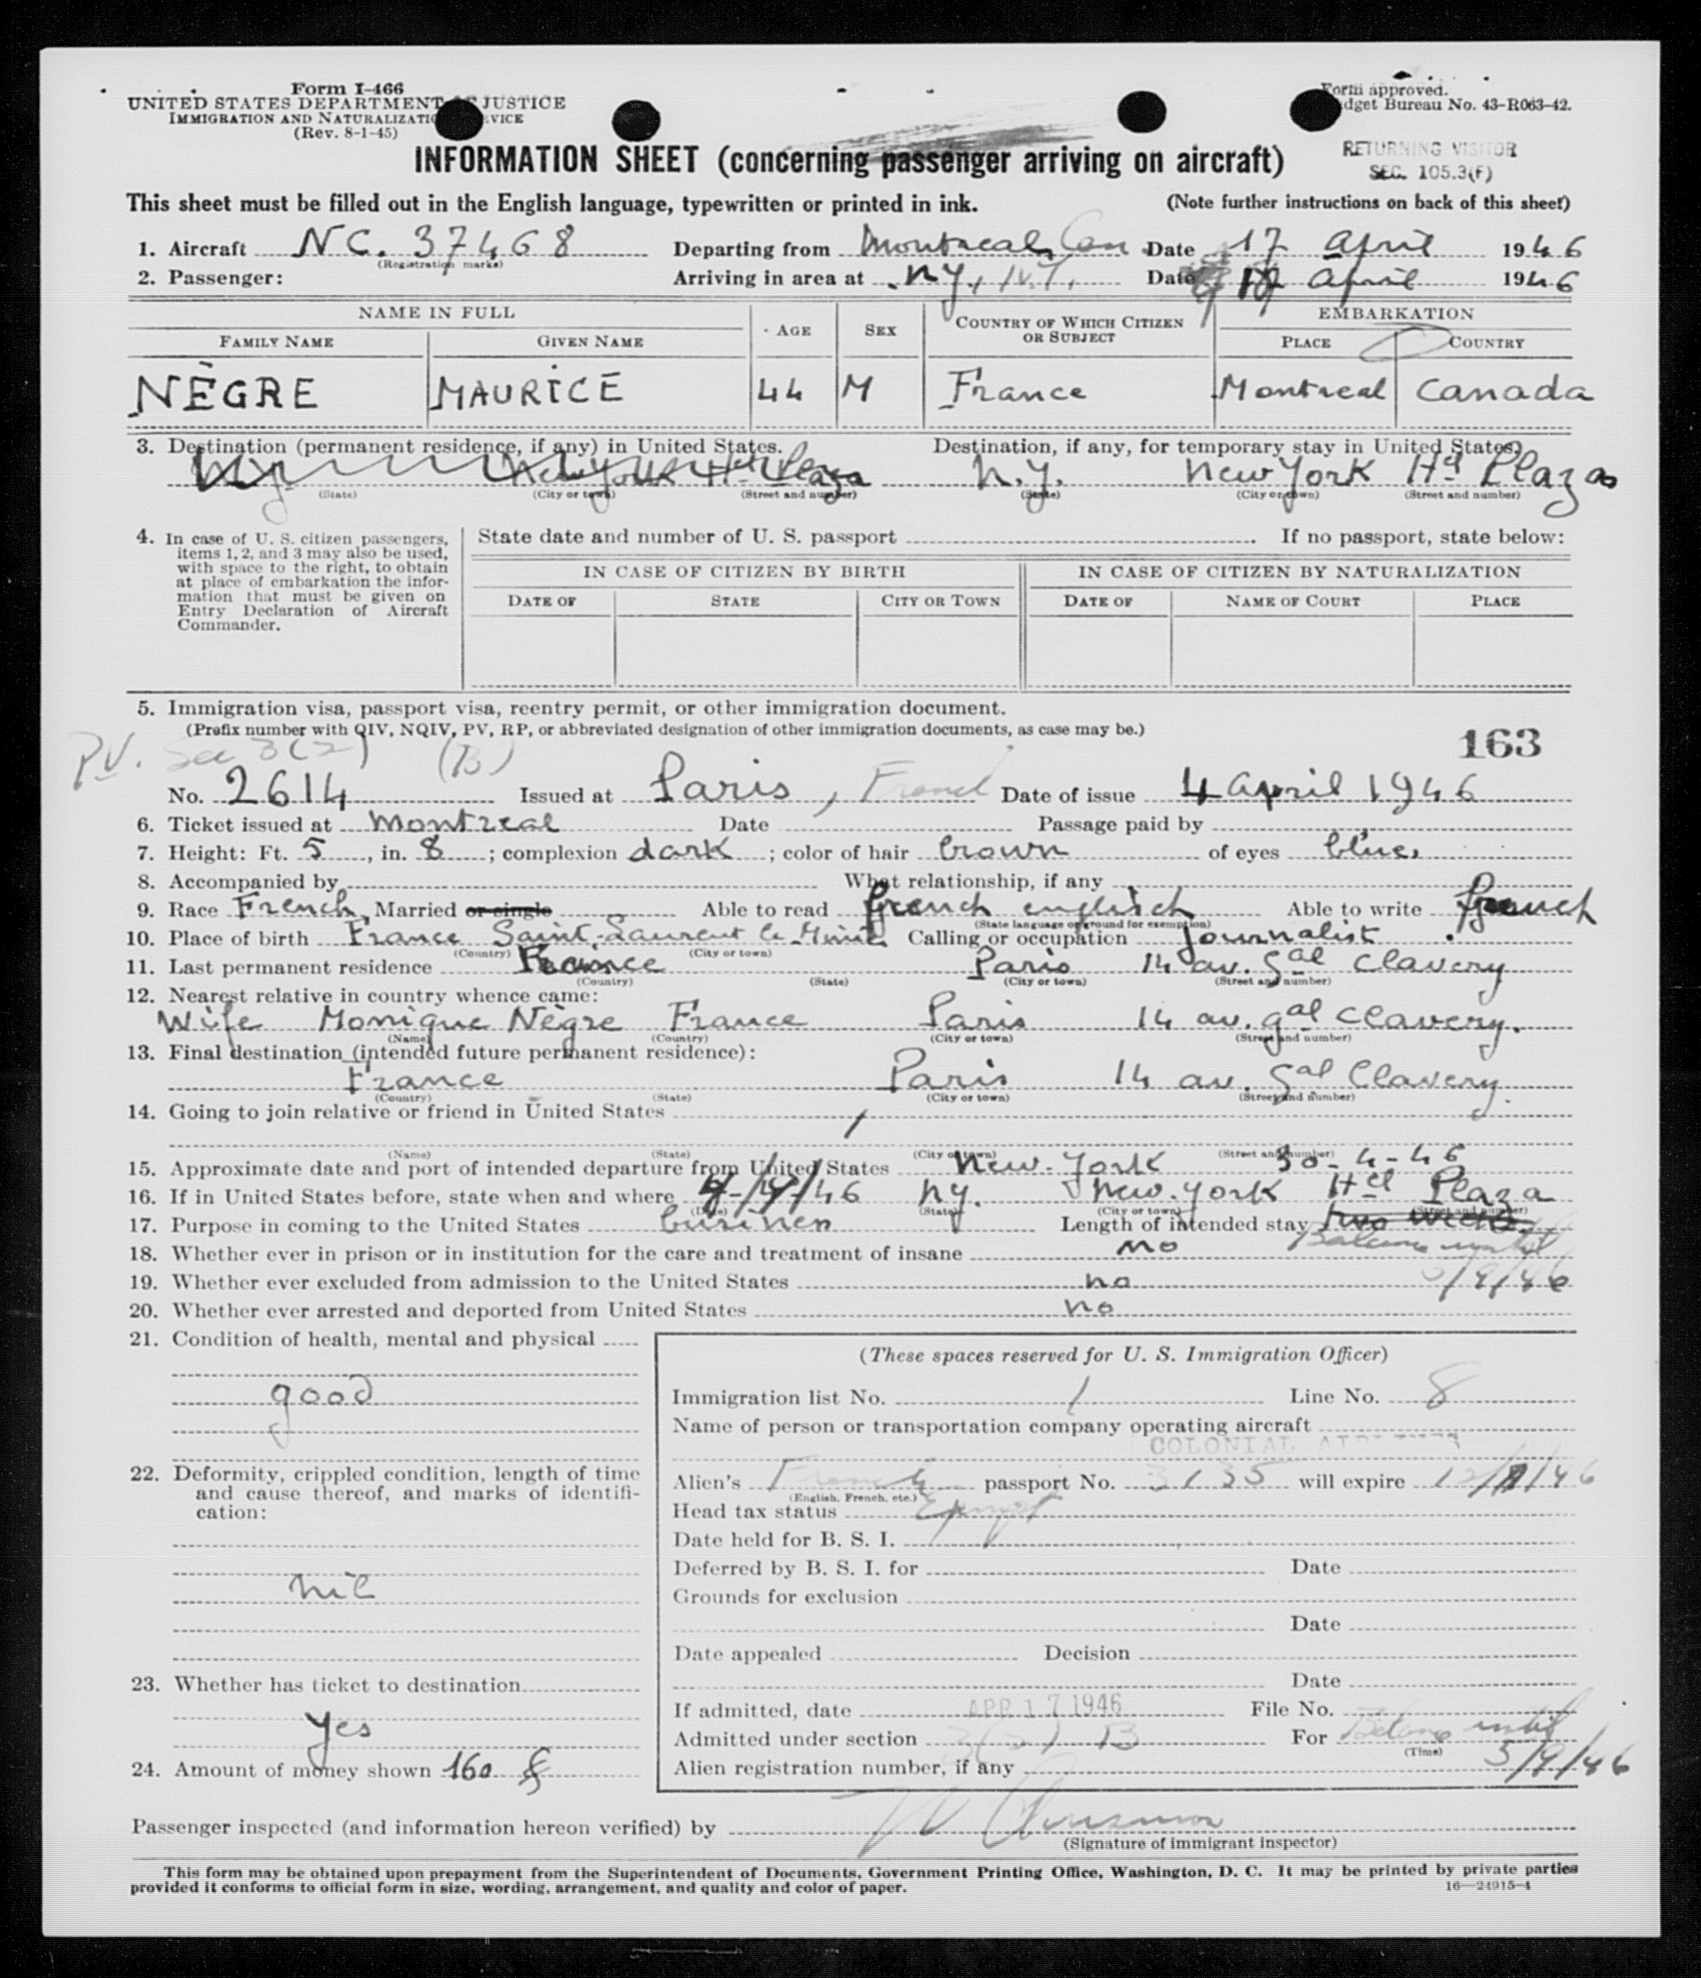 Form I-466
UNITED STATES DEPARTMENT JUSTICE
IMMIGRATION AND NATURALIZATION SERVICE
(Rev. 8-1-45)
Form approved.
Budget Bureau No. 43-R063-42.
INFORMATION SHEET (concerning passenger arriving on aircraft)
RETURNING VISITOR
SEC. 105.3(F)
This sheet must be filled out in the English language, typewritten or printed in ink. (Note further instructions on back of this sheet)
1. Aircraft NC. 37468 Departing from Montreal, Can Date 17 april 1946
(Registration marks)
2. Passenger: Arriving in area at N.Y., N.Y. Date 17 april 1946
NAME IN FULL AGE SEX COUNTRY OF WHICH CITIZEN OR SUBJECT EMBARKATION
FAMILY NAME GIVEN NAME PLACE COUNTRY
NÈGRE MAURICE 44 M France Montreal Canada
3. Destination (permanent residence, if any) in United States. Destination, if any, for temporary stay in United States.
New York Htl Plaza N.Y. New York Htl Plaza
(State) (City or town) (Street and number) (State) (City or town) (Street and number)
4. In case of U. S. citizen passengers, items 1, 2, and 3 may also be used, with space to the right, to obtain at place of embarkation the information that must be given on Entry Declaration of Aircraft Commander.
State date and number of U. S. passport If no passport, state below:
IN CASE OF CITIZEN BY BIRTH IN CASE OF CITIZEN BY NATURALIZATION
DATE OF STATE CITY OR TOWN DATE OF NAME OF COURT PLACE
5. Immigration visa, passport visa, reentry permit, or other immigration document.
(Prefix number with QIV, NQIV, PV, RP, or abbreviated designation of other immigration documents, as case may be.)
163
PV. Sec 3(2) (B)
No. 2614 Issued at Paris, France Date of issue 4 april 1946
6. Ticket issued at Montreal Date Passage paid by
7. Height: Ft. 5, in. 8; complexion dark; color of hair brown of eyes blue
8. Accompanied by What relationship, if any
9. Race French, Married or single Able to read french englisch Able to write french
(State language or ground for exemption)
10. Place of birth France Saint-Laurent le Minier Calling or occupation Journalist
(Country) (City or town)
11. Last permanent residence France Paris 14 av. Gal Clavery
(Country) (State) (City or town) (Street and number)
12. Nearest relative in country whence came:
Wife Monique Nègre France Paris 14 av. gal Clavery.
(Name) (Country) (City or town) (Street and number)
13. Final destination (intended future permanent residence):
France Paris 14 av. Gal Clavery.
(Country) (State) (City or town) (Street and number)
14. Going to join relative or friend in United States /
(Name) (State) (City or town) (Street and number)
15. Approximate date and port of intended departure from United States New-York 30-4-46
16. If in United States before, state when and where 4/46 NY. New-york Htl Plaza
(Date) (State) (City or town) (Street and number)
17. Purpose in coming to the United States business Length of intended stay two weeks
Balance until
18. Whether ever in prison or in institution for the care and treatment of insane no
19. Whether ever excluded from admission to the United States no 5/9/46
20. Whether ever arrested and deported from United States no
21. Condition of health, mental and physical
good
22. Deformity, crippled condition, length of time and cause thereof, and marks of identification:
nil
23. Whether has ticket to destination
Yes
24. Amount of money shown 160 $
(These spaces reserved for U. S. Immigration Officer)
Immigration list No. 1 Line No. 8
Name of person or transportation company operating aircraft
COLONIAL AIRLINES
Alien's French passport No. 3135 will expire
(English, French, etc.)
Head tax status Exempt
Date held for B. S. I.
Deferred by B. S. I. for Date
Grounds for exclusion
Date
Date appealed Decision
Date
If admitted, date APR 17 1946 File No.
Admitted under section 3(2) B For Balance until
(Time)
5/9/46
Alien registration number, if any
Passenger inspected (and information hereon verified) by
(Signature of immigrant inspector)
This form may be obtained upon prepayment from the Superintendent of Documents, Government Printing Office, Washington, D. C. It may be printed by private parties
provided it conforms to official form in size, wording, arrangement, and quality and color of paper.
16—24915-4